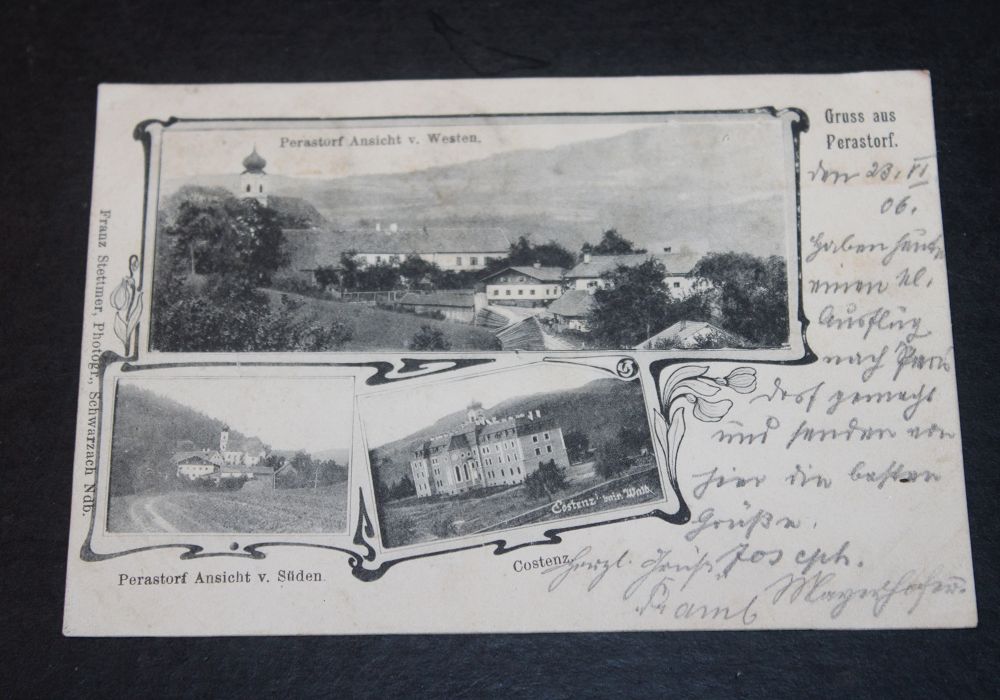 Perastorf Ansicht v. Westen.
Gruss aus
Perastorf.
den 23. VI
06.
Haben heute
einen kl.
Ausflug
nach Pera
dorf gemacht
und senden von
hier die besten
Grüße.
Joseph.
Herzl. Grüße
Mayerhofer.
Franz Stettmer, Photogr., Schwarzach Ndb.
Costenz
Perastorf Ansicht v. Süden.
Costenz.